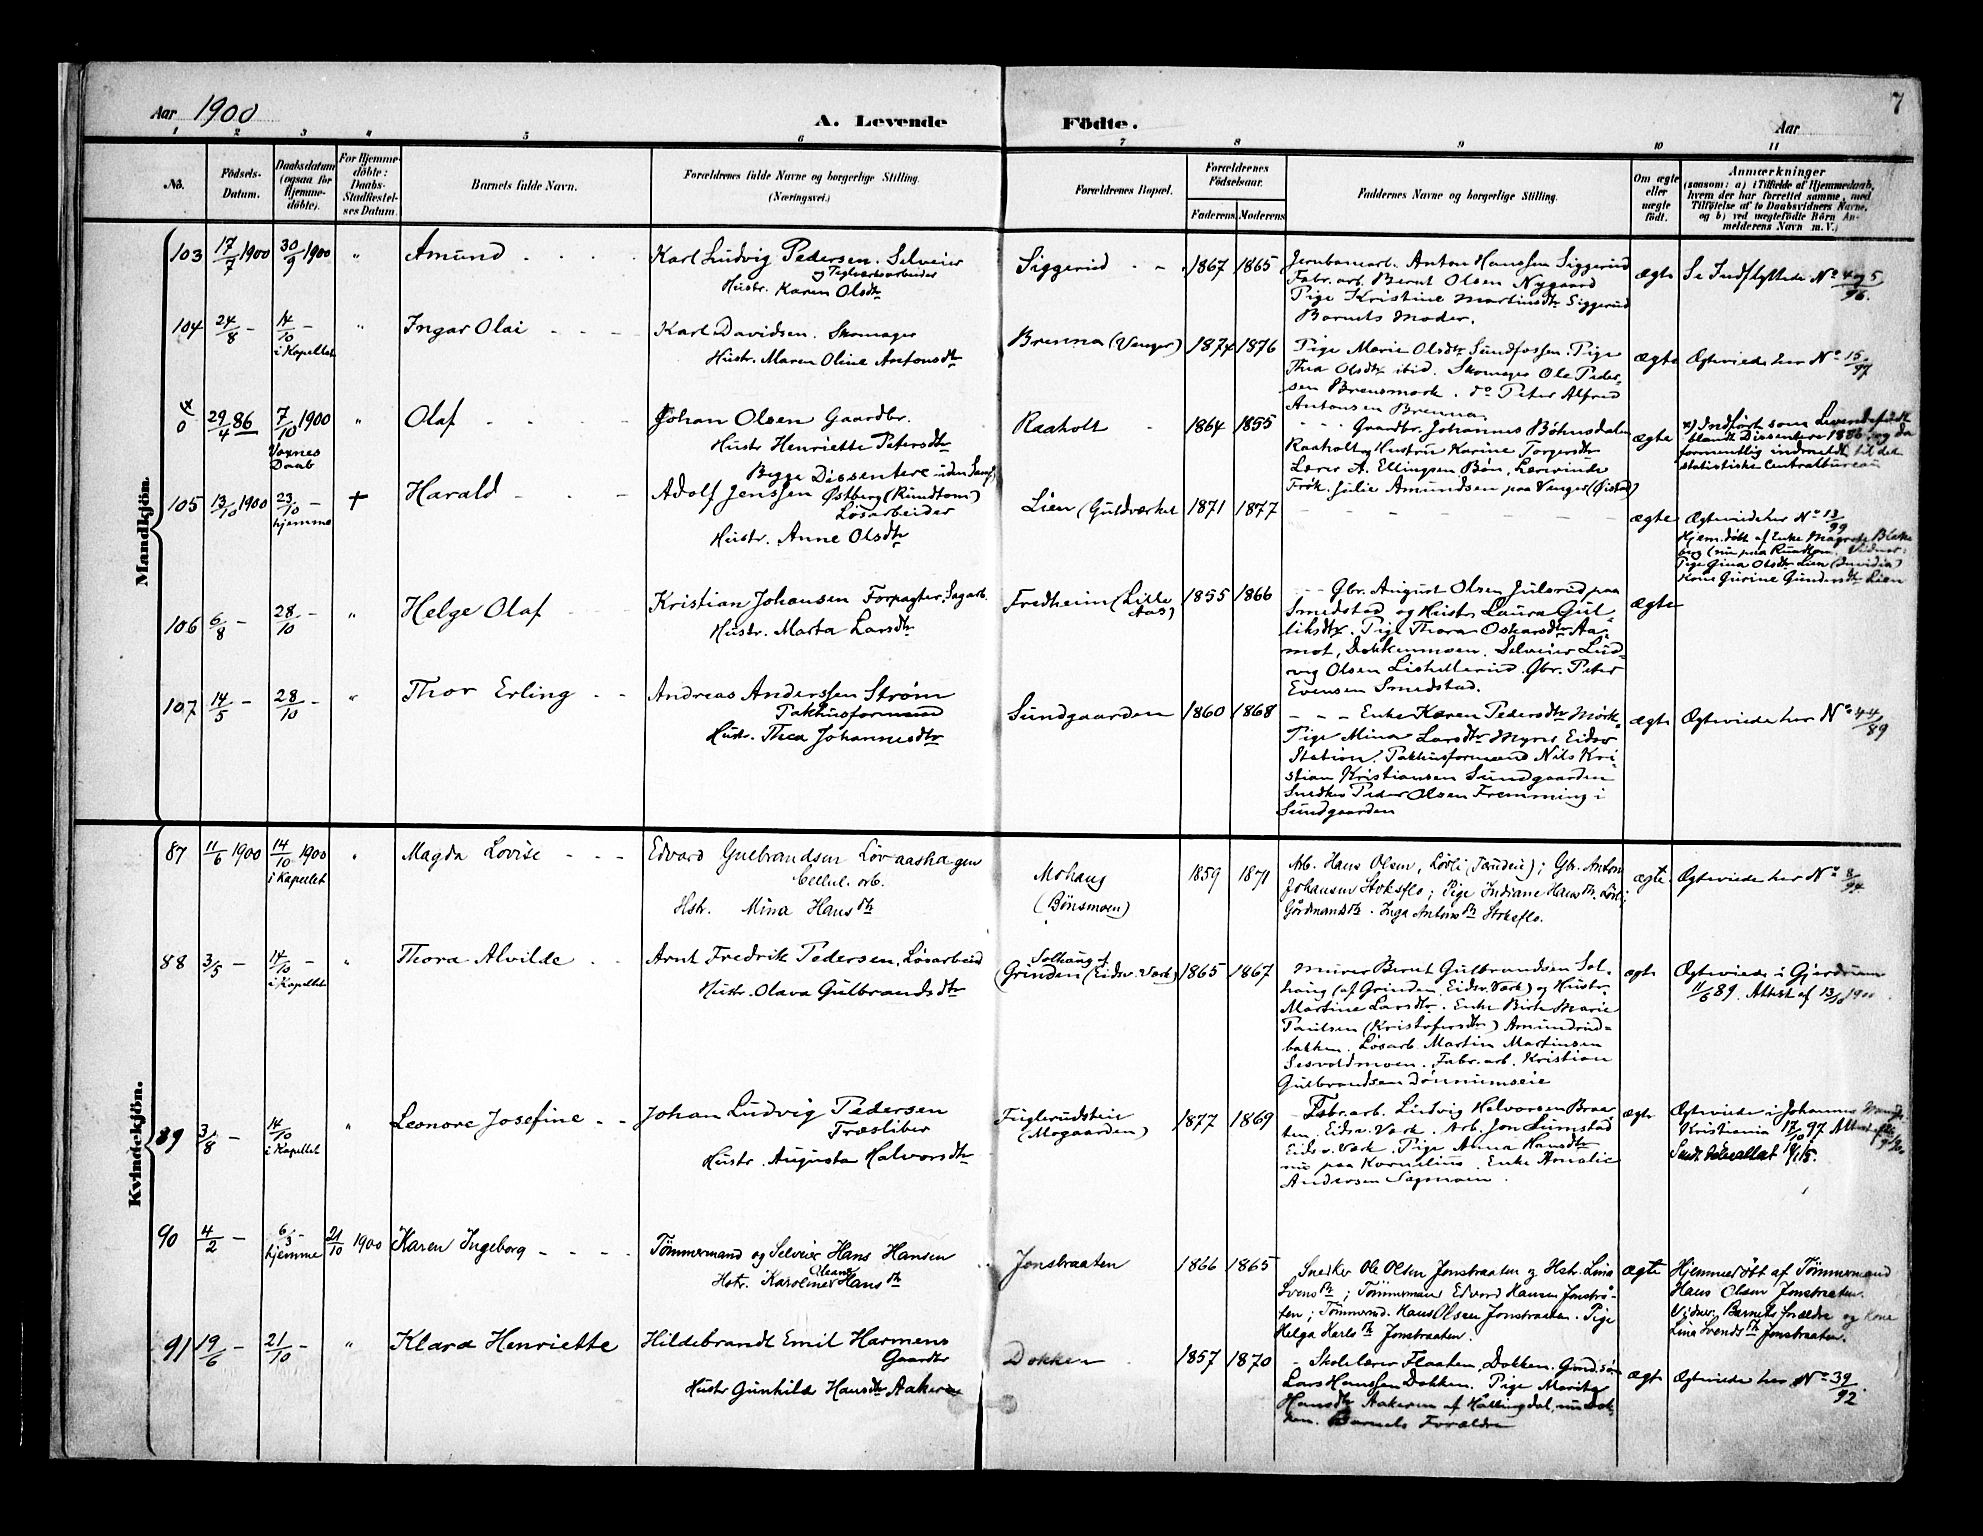 Aar 1900
A. Levende Födte.
Aar
7
1 2 3 4 5 6 7 8 9 10 11
No.
Födsels-
Datum.
Daabsdatum
(ogsaa for
Hjemme-
döbte).
For Hjemme-
döbte:
Daabs-
Stadfæstel-
ses Datum.
Barnets fulde Navn.
Forældrenes fulde Navne og borgerlige Stilling.
(Næringsvei.)
Forældrenes Bopæl.
Forældrenes
Födselsaar.
Faderens. Moderens
Faddernes Navne og borgerlige Stilling.
Om ægte
eller
uægte
födt.
Anmærkninger
(saasom: a) i Tilfælde af Hjemmedaab,
hvem der har forrettet samme, med
Tilföielse af to Daabsvidners Navne,
og b) ved uægtefödte Börn An-
melderens Navn m. V.)
Mandkjön.
103 17/7 1900 30/9 1900 " Amund
Karl Ludvig Pedersen. Selveier
og Teglværksarbeider
Hustr. Karen Olsdtr
Siggerud 1867 1865
Jernbanearb. Anton Hanssen Siggerud
Fabr. arb. Bernt Olsen Nygaard
Pige Kristine Martinsdtr Siggerud
Barnets Moder.
ægte
Se Indflyttede No 4 og 5/96.
104 24/8 – 14/10 – " Ingar Olai
i Kapellet
Karl Davidsen. Skomager
Hustr. Maren Oline Antonsdtr
Brenna (Venger) 1874 1876
Pige Marie Olsdtr Sundfossen. Pige
Thea Olsdtr ibid. Skomager Ole Peder-
sen Brensmork. do Peter Alfred
Antonsen Brenna.
ægte
Ægteviede her No 15/97
0 29/4 86 7/10 1900 " Olaf
Voxnes
Daab
Johan Olsen Gaardbr.
Hustr Henriette Petersdtr
Begge Dissentere uden Samf.
Raaholt 1864 1855
Gaardbr. Johannes Bøhnsdalen
Raaholt og Hustru Karine Torgersdtr
Lærer A. Ellingsen Bøn, Lærerinde
Frøk. Julie Amundsen paa Venger (Østad)
ægte
x) Indført som Levendefødt
blandt Dissentere 1886 og da
formentlig indmeldt til det
statistiske Centralbureau
105 13/10 1900 23/10 – + Harald
hjemme
Adolf Jenssen Østberg (Rundtom)
Løsarbeider
Hustr. Anne Olsdtr
Lien (Guldværket 1871 1877
ægte
Ægteviede her No 13/99
Hjem.døbt af Enke
Pige Gina Olsdtr Lien
Kone Gurine Gundersdtr Lien
106 6/8 – 28/10 – " Helge Olaf
Kristian Johansen Forpagter, Sagarb.
Hustr. Marta Larsdtr
Fredheim (Lille
Aas) 1855 1866
Gbr. August Olsen Julsrud paa
Smedstad og Hustr Laura Gul-
liksdtr. Pige Thora Oskarsdtr Aa-
mot, Dokkenmoen. Selveier Lud-
vig Olsen Lishellerud. Gbr. Peter
Evensen Smedstad.
ægte
107 14/5 – 28/10 – " Thor Erling
Andreas Anderssen Strøm
Pakhusformand
Hustr. Thea Johannesdtr
Sundgaarden 1860 1868
Enke Karen Pedersdtr Mørk.
Pige Mina Larsdtr Myrer Eidsv.
Station. Pakhusformand Nils Kri-
stian Kristiansen Sundgaarden
Snedker Peder Olsen Fremming i
Sundgaarden
ægte
Ægteviede her No 44/89
Kvindekjön.
87 11/6 1900 14/10 1900 " Magda Lovise
i Kapellet
Edvard Gulbrandsen Løvaashagen
Cellul. arb.
Hstr. Mina Hansdtr
Mohaug
(Bønsmoen) 1859 1871
Arb. Hans Olsen, Løvli; Gb. Anton
Johansen Stokeflo; Pige Indiane Hansdtr. Løvli;
Inga Antonsdtr Stokeflo.
ægte.
Ægteviede her No 8/94.
88 3/5 – 14/10 – " Thora Alvilde
i Kapellet
Arnt Fredrik Pedersen, Løsarbeid
Hustr. Olava Gulbrandsdtr
Solhaug af
Grinden (Eidsv. Værk) 1865 1867
Murer Bernt Gulbrandsen Sol-
haug (af Grinden, Eidsv. Værk) og Hustr.
Martine Larsdtr. Enke Birte Marie
Paulsen (Kristofersdtr) Amundrud-
bakken. Løsarb. Martin Martinsen
Sesvoldmoen. Fabr. arb. Kristian
Gulbrandsen Dønnumseie
ægte
Ægteviede i Gjerdrum
11/6 89. Attest af 13/10 1900
89 3/8 – 14/10 – " Leonore Josefine
i Kapellet
Johan Ludvig Pedersen
Træsliber
Hustr. Augusta Halvorsdtr
Fuglerudsteie
(Mogaarden) 1877 1869
Fabr. arb. Ludvig Halvorsen Braa-
ten, Eidsv. Værk. Arb. Jon Lumstad
Eidsv. Værk. Pige Anna Hansdtr
nu paa Kornelius. Enke Amalie
Andersen Sagmoen.
ægte
Ægteviede i Johannes
Kristiania 17/10 97
90 4/2 – 6/3 – 21/10 1900 Karen Ingeborg
hjemme
Tømmermand og Selveier Hans Hansen
Hstr. Karoline Oleana Hansdtr
Jonsbraaten 1866 1865
Snedker Ole Olsen Jonsbraaten og Hstr. Lina
Svensdtr; Tømmermand Edvard Hansen Jonsbrå-
ten; Tømmermd. Hans Olsen Jonsbraaten. Pige
Helga Karlsdtr Jonsbraaten.
ægte
Hjemmedøbt af Tømmermand
Hans Olsen Jonsbraaten.
Vidner. Barnets Forældre og Kone
Lina Svendsdtr Jonsbraaten.
91 19/6 – 21/10 – " Klara Henriette
Hildebrandt Emil Harmens
Gaardbr
Hustr Gunhilde Hansdtr Aakeren
Dokken 1857 1870
Skolelærer Flaaten, Dokken. Grd.søn
Lars Hanssen Dokken. Pige Marita
Hansdtr Aakeren af Hallingdal, nu Dok-
ken. Barnets Forældre
ægte
Ægteviede her No 39/92.